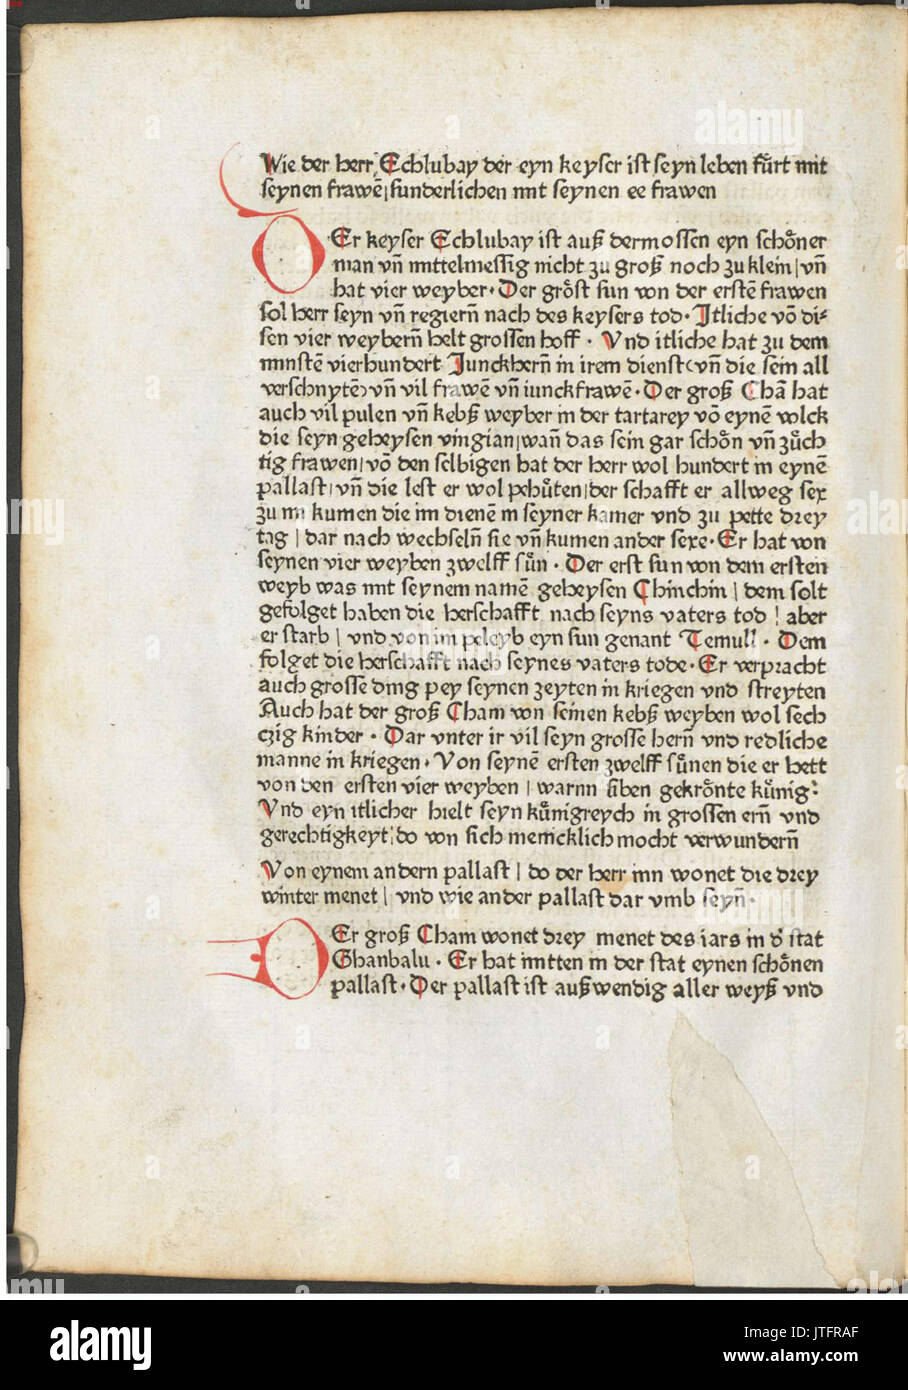 Wie der herr Echlubay der eyn keyser ist seyn leben fu̇rt mit
seynen frawē/sunderlichen mit seynen ee frawen
DEr keyser Echlubay ist auß dermossen eyn schoͤner
man vn̄ mittelmessig nicht zu groß noch zu klein/vn̄
hat vier weyber· Der groͤst sun von der erstē frawen
sol herr seyn vn̄ regiern̄ nach des keysers tod· Itliche vō di⸗
sen vier weybern̄ helt grossen hoff · Vnd itliche hat zu dem
minstē vierhundert Junckhern̄ in irem dienst(vn̄ die sein all
verschnytē)vn̄ vil frawē vn̄ iunckfrawē· Der groß Chā hat
auch vil pulen vn̄ kebß weyber in der tartarey vō eynē volck
die seyn geheysen vingian/wan̄ das sein gar schoͤn vn̄ zuͤch
tig frawen/vō den selbigen hat der herr wol hundert in eynē
pallast/vn̄ die lest er wol pehuͤten/der schafft er allweg sex
zu im kumen die im dienē in seyner kamer vnd zu pette drey
tag / dar nach wechseln̄ sie vn̄ kumen ander sexe· Er hat von
seynen vier weyben zwelff suͤn · Der erst sun von dem ersten
weyb was mit seynem namē geheysen Chinchin / dem solt
gefolget haben die herschafft nach seyns vaters tod / aber
er starb / vnd von im peleyb eyn sun genant Temull · Dem
folget die herschafft nach seynes vaters tode· Er verpracht
auch grosse ding pey seynen zeyten in kriegen vnd streyten
Auch hat der groß Cham von seinen kebß weyben wol sech
czig kinder · Dar vnter ir vil seyn grosse hern̄ vnd redliche
manne in kriegen· Von seynē ersten zwelff suͤnen die er hett
von den ersten vier weyben / warnn siben gekroͤnte kuͤnig·
Vnd eyn itlicher hielt seyn kuͤnigreych in grossen ern̄ vnd
gerechtigkeyt/do von sich mencklich mocht verwundern̄
Von eynem andern pallast / do der herr inn wonet die drey
winter menet / vnd wie ander pallast dar vmb seyn̄·
DEr groß Cham wonet drey menet des iars in d' stat
Ghanbalu · Er hat mitten in der stat eynen schoͤnen
pallast· Der pallast ist außwendig aller weyß vnd
alamy
Image ID: JTFRAF
www.alamy.com